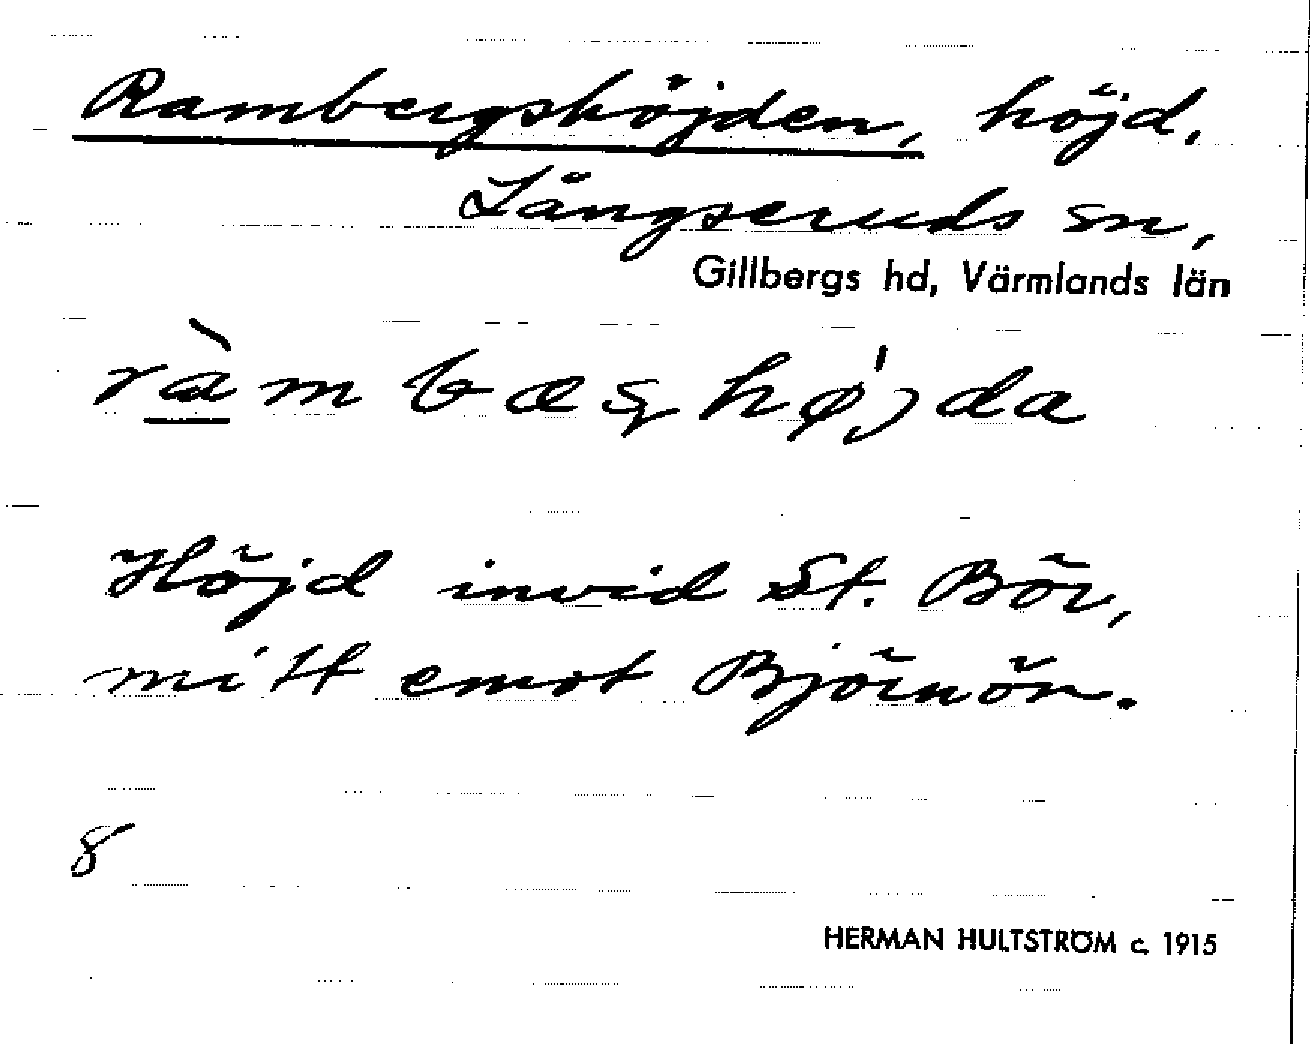 Rambergshöjden, höjd.
Långseruds sn,
Gillbergs hd, Värmlands län
ràmbæshø̍jda
Höjd invid St. Bör,
mitt emot Björnön.
8
HERMAN HULTSTRÖM c. 1915